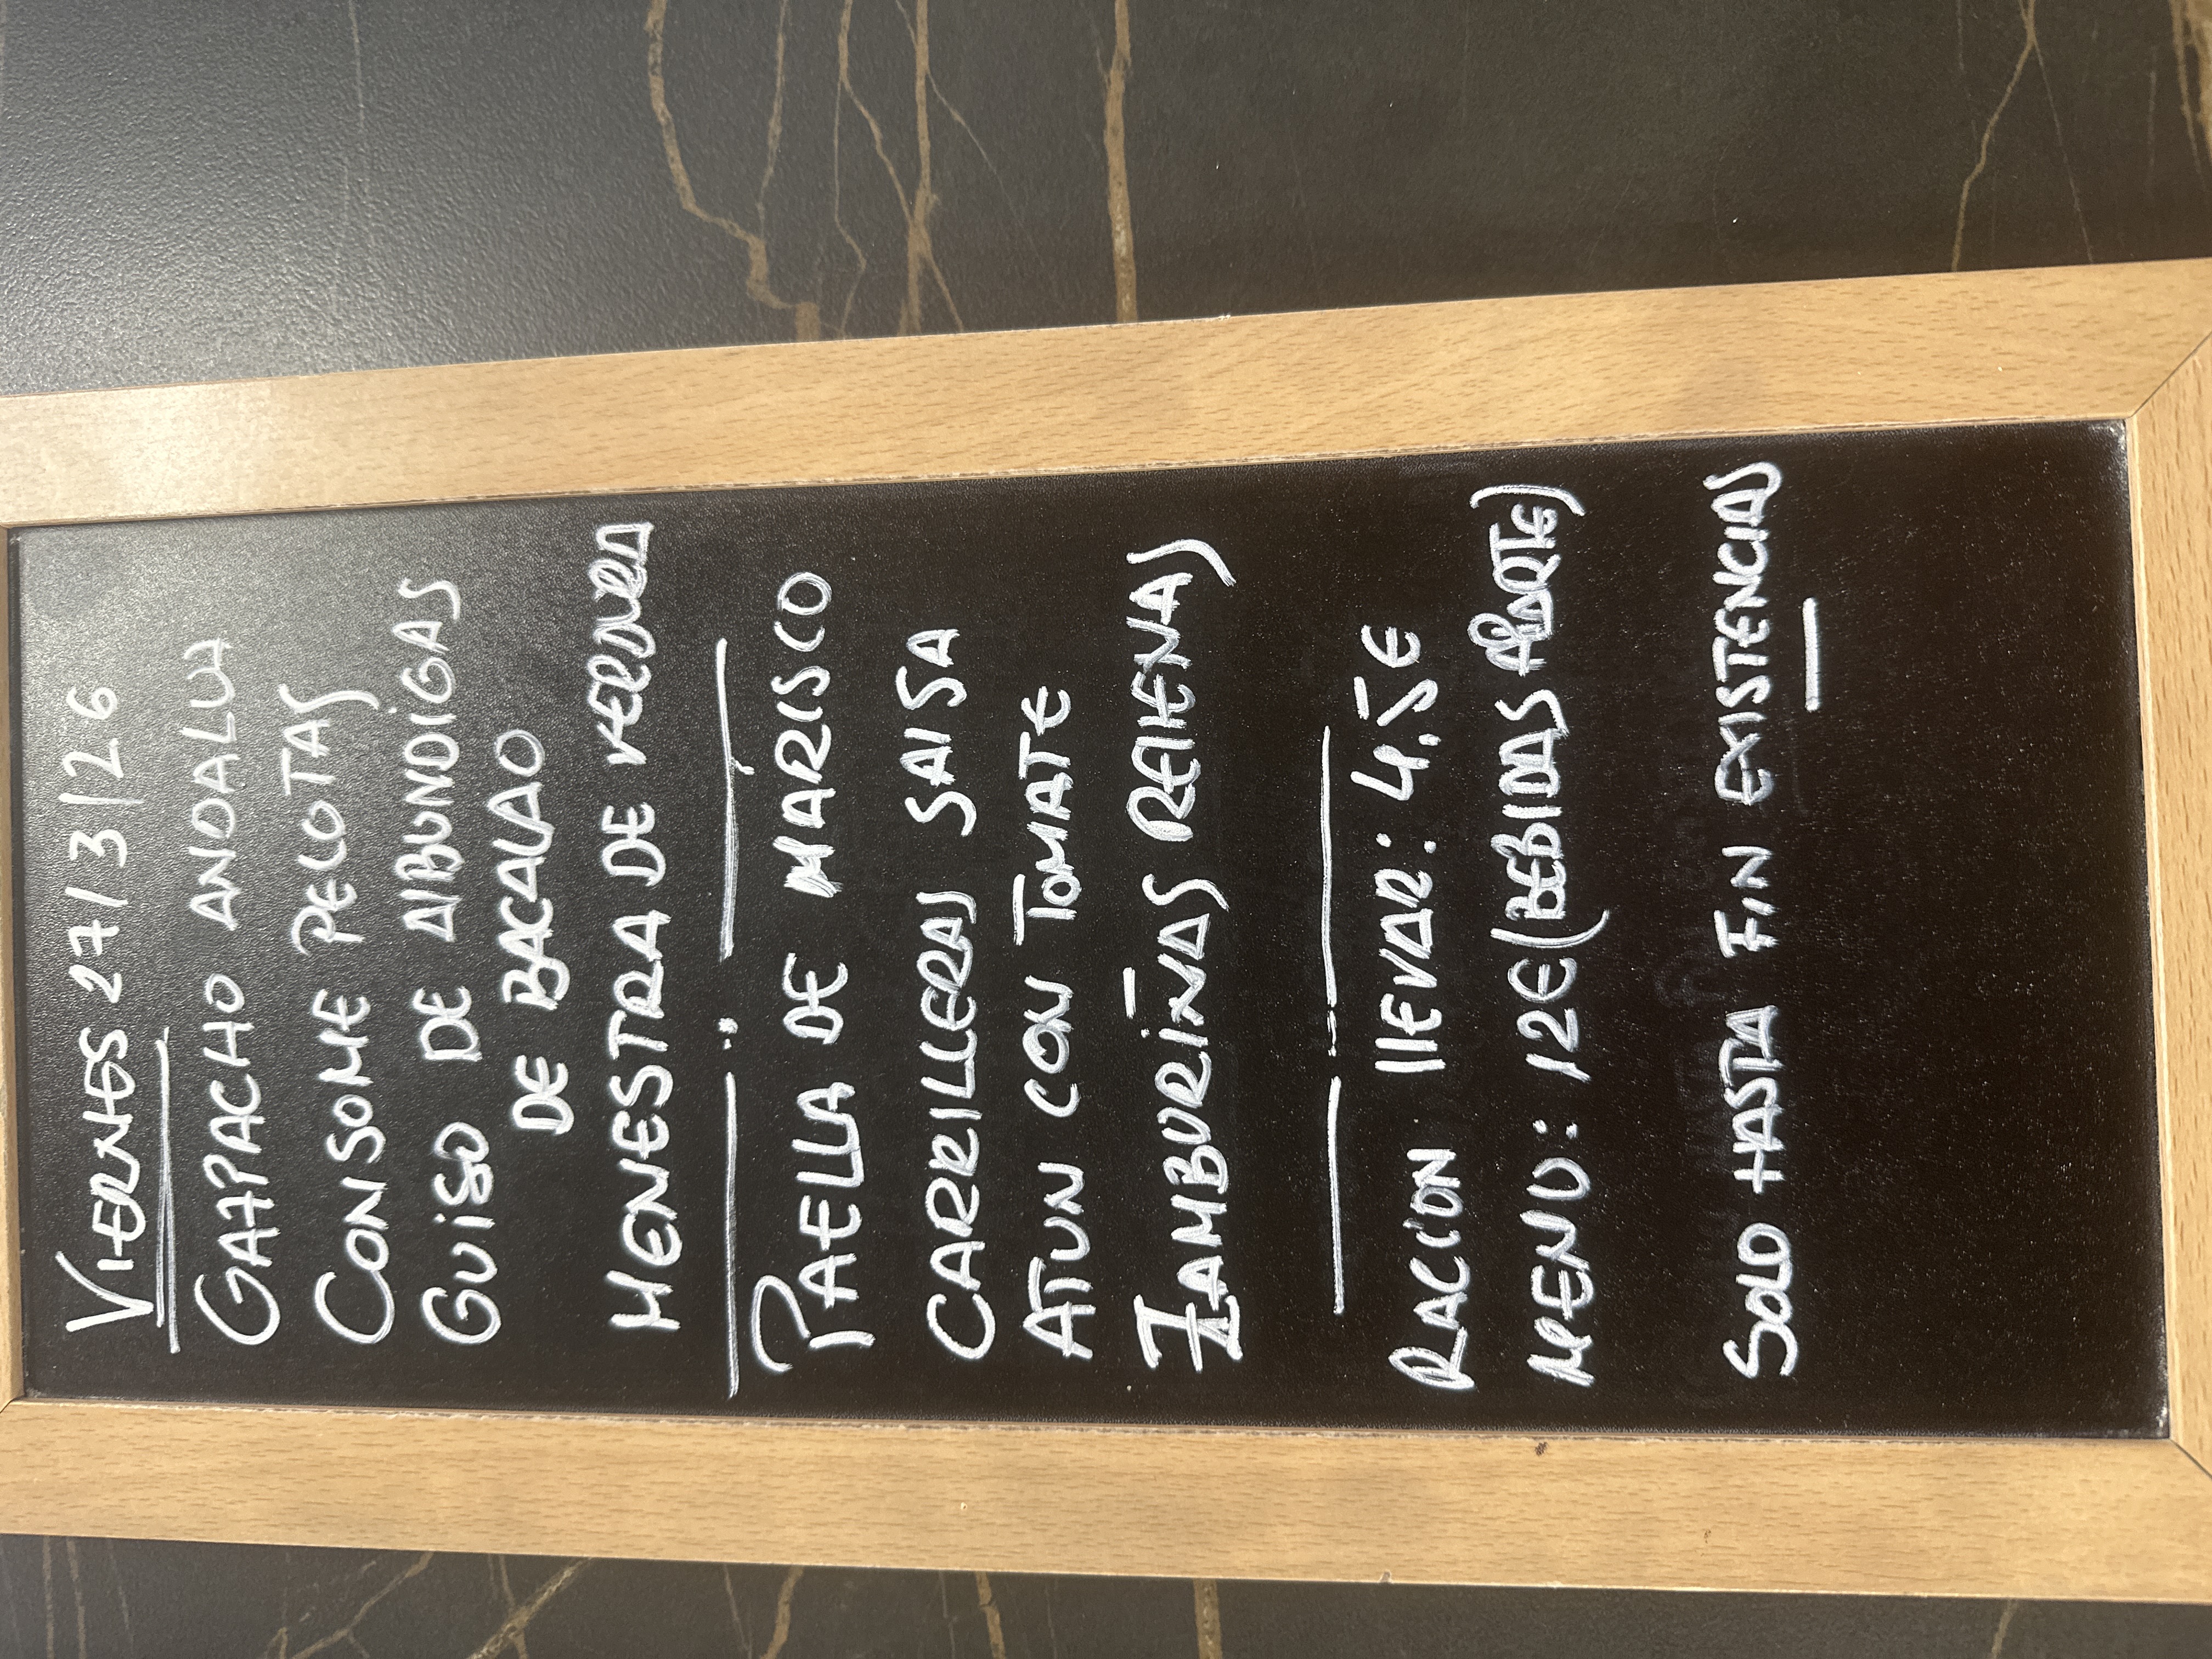 VIERNES 27/3/26
GAZPACHO ANDALUZ
CONSOME PELOTAS
GUISO DE AlBUNDIGAS
DE BACALAO
MENESTRA DE VERDURA
PAELLA DE MARISCO
CARRILLERAS SAlSA
ATUN CON TOMATE
ZAMBURIÑAS REllENAS
RACION llEVAR: 4.5€
MENU: 12€ (BEBIDAS APARTE)
SOLO HASTA FIN EXISTENCIAS